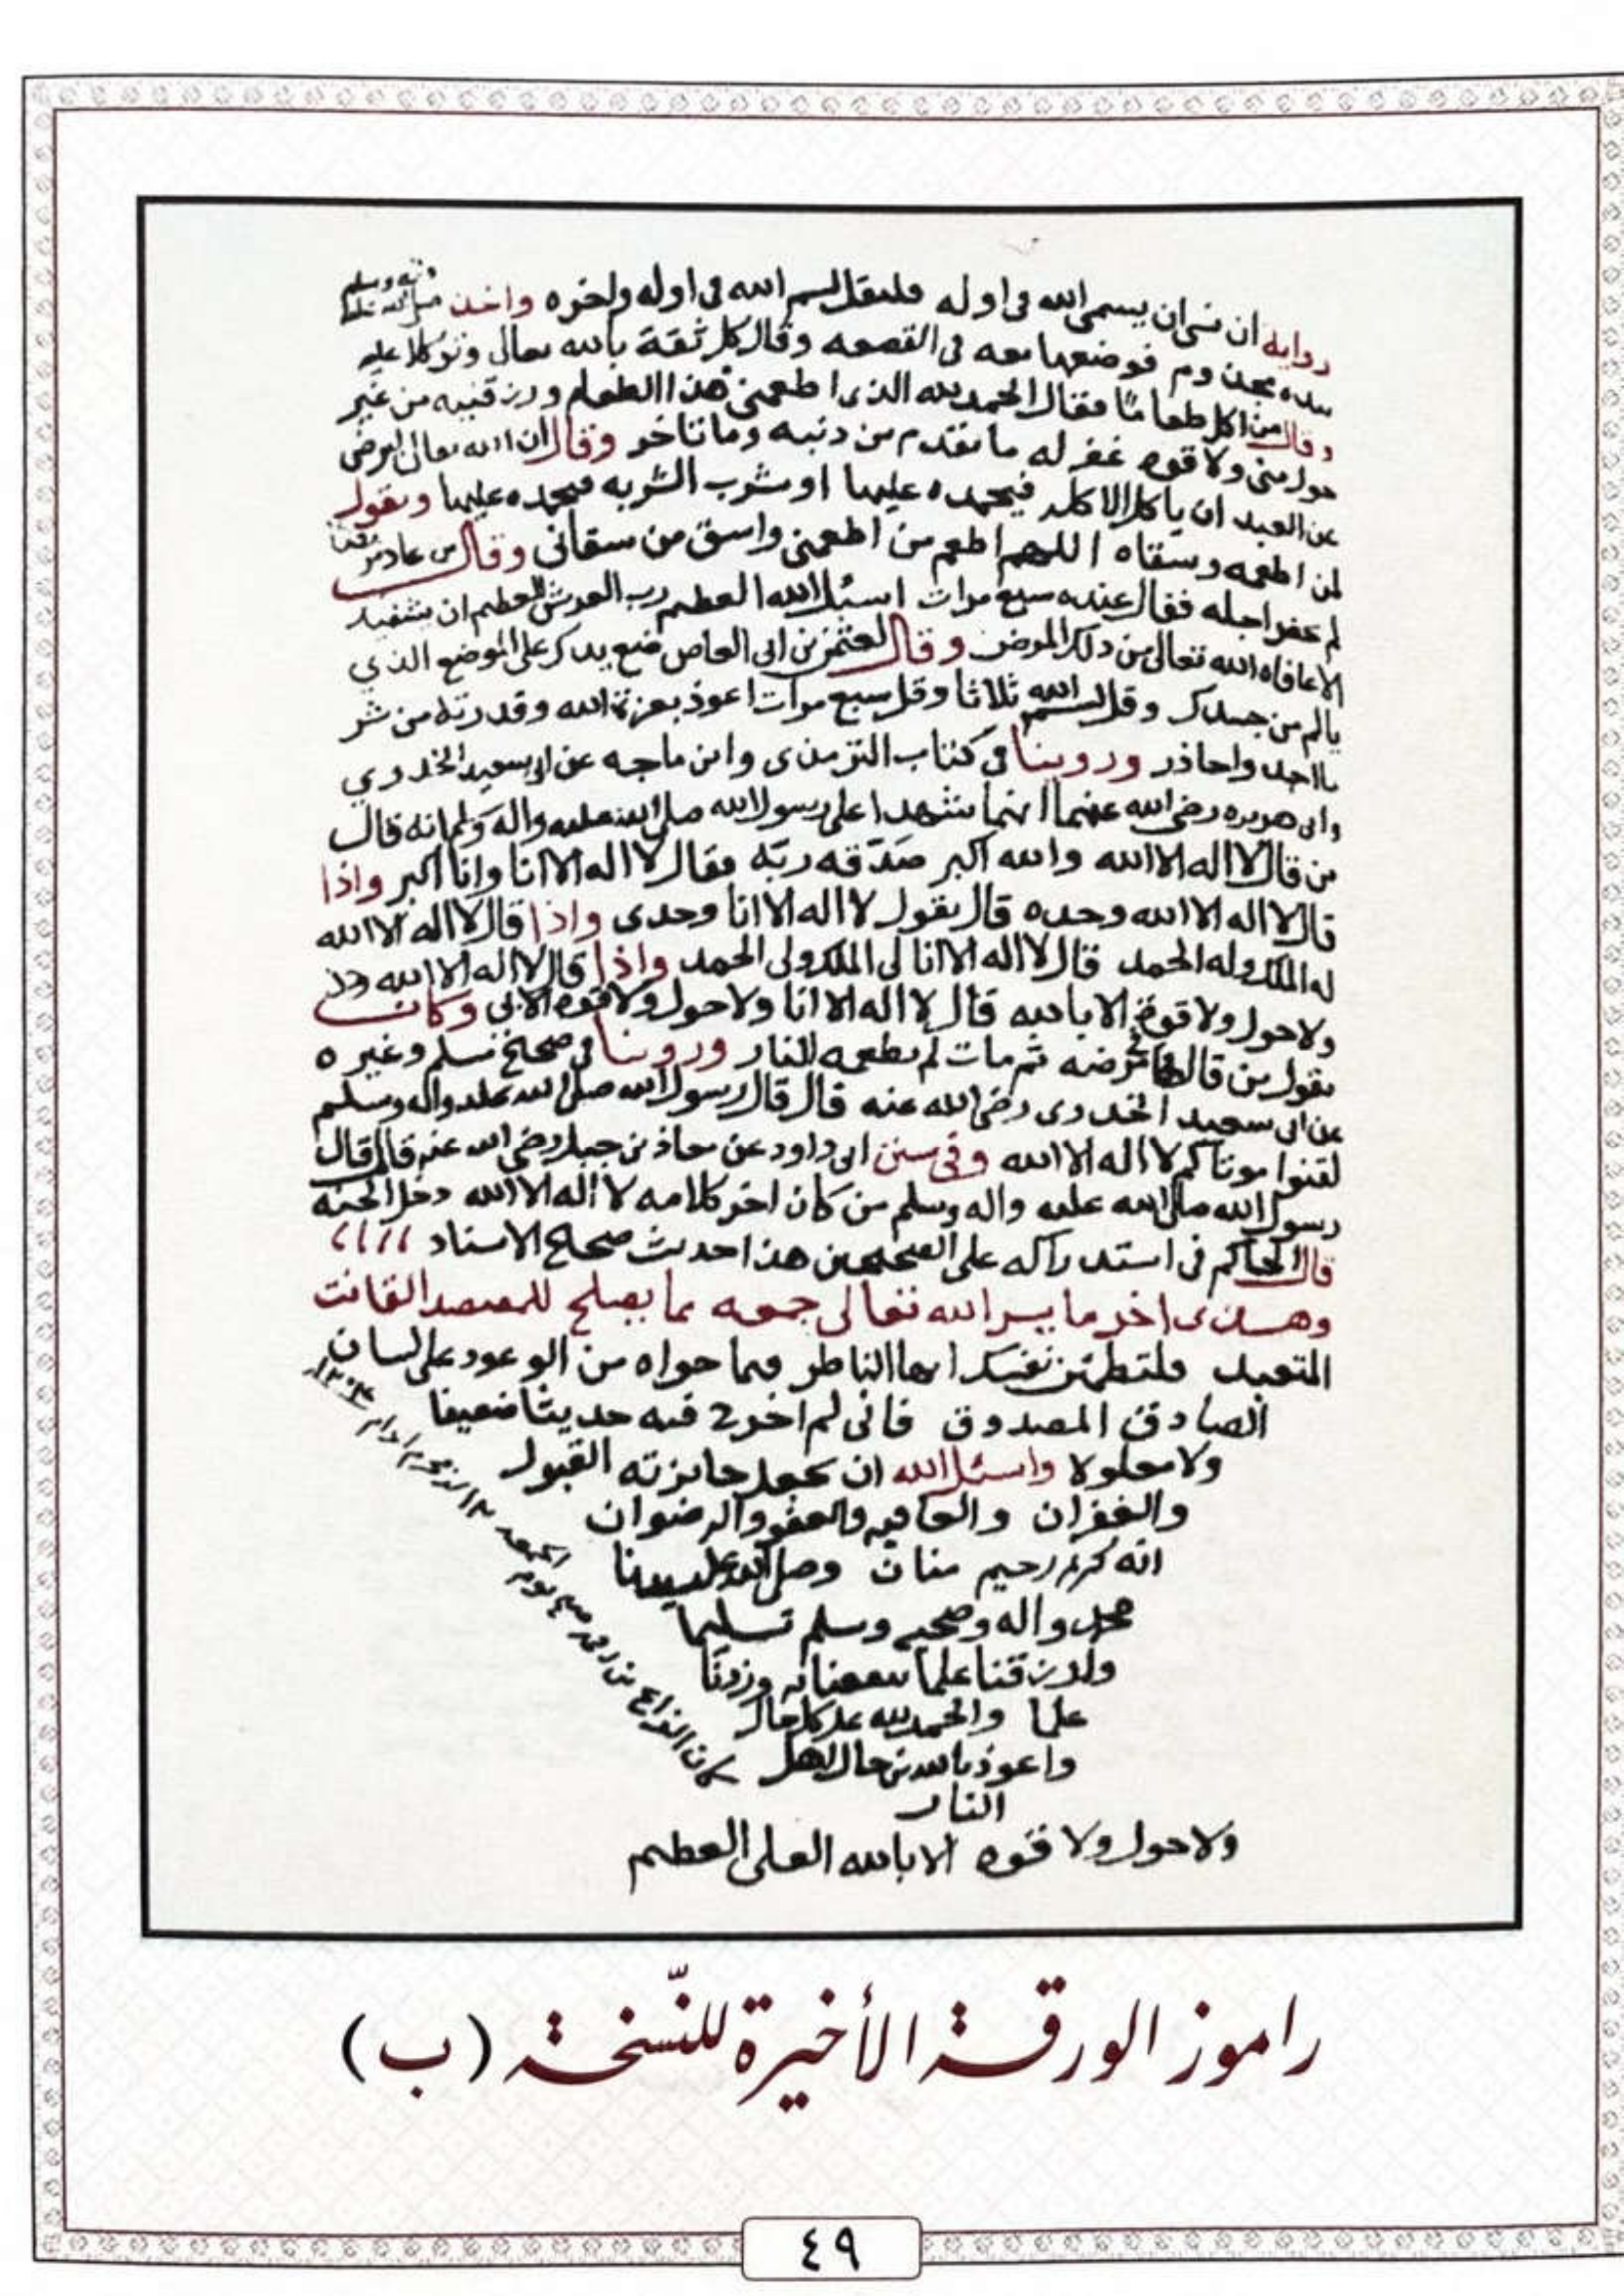 رواية ان نسي ان يسمي الله في اوله فليقل بسم الله في اوله واخره واخذ صلى الله عليه واله وسلم
بيده مجذوم فوضعها معه في القصعه وقال كل ثقة بالله تعالى وتوكلا عليه
وقال من اكل طعامًا فقال الحمد لله الذي اطعمني هذا الطعام ورزقنيه من غير
حول مني ولا قوه غفر له ما تقدم من ذنبه وما تاخر وقال ان الله تعالى ليرضى
عن العبد ان ياكل الاكله فيحمده عليها او يشرب الشربه فيحمده عليها ويقول
لمن اطعمه وسقاه اللهم اطعم من اطعمني واسق من سقاني وقال من عاد مريضا
لم يحضر اجله فقال عنده سبع مرات اسئل الله العظيم رب العرش العظيم ان يشفيك
الا عافاه الله تعالى من ذلك المرض وقال لعثمن بن ابي العاص ضع يدك على الموضع الذي
يالم من جسدك وقل بسم الله ثلاثا وقل سبع مرات اعوذ بعزة الله وقدرته من شر
ما اجد واحاذر وروينا في كتاب الترمذي وابن ماجه عن ابي سعيد الخدري
وابي هريره رضي الله عنهما انهما شهدا على رسول الله صلى الله عليه واله وسلم انه قال
من قال لا اله الا الله والله اكبر صَدّقه ربّه فقال لا اله الا انا وانا اكبر واذا
قال لا اله الا الله وحده قال يقول لا اله الا انا وحدي واذا قال لا اله الا الله
له الملك وله الحمد قال لا اله الا انا لي الملك ولي الحمد واذا قال لا اله الا الله
ولا حول ولا قوة الا بالله قال لا اله الا انا ولا حول ولا قوه الا بي وكان
يقول من قالها في مرضه ثم مات لم تطعمه النار وروينا في صحيح مسلم وغيره
عن ابي سعيد الخدري رضي الله عنه قال قال رسول الله صلى الله عليه واله وسلم
لقنوا موتاكم لا اله الا الله وفي سنن ابي داود عن معاذ بن جبل رضي الله عنه قال قال
رسول الله صلى الله عليه واله وسلم من كان اخر كلامه لا اله الا الله دخل الجنه
قال الحاكم في استدراكه على الصحيحين هذا حديث صحيح الاسناد
وهذا اخر ما يسر الله تعالى جمعه مما يصلح للمقتصد القانت
المتعبد فلتطمئن نفسك ايها الناظر فيما حواه من الوعود على لسان
الصادق المصدوق فاني لم اخرج فيه حديثا ضعيفا
ولا معلولا واسئل الله ان يجعل جائزته القبول
والغفران والعافيه والعفو والرضوان
انه كريم رحيم منان وصلى الله على سيدنا
محمد واله وصحبه وسلم تسليما
وارزقنا علما ينفعنا به وزدنا
علما والحمد لله على كل حال
واعوذ بالله من حال اهل
النار
ولا حول ولا قوه الا بالله العلي العظيم
كان الفراغ من رقمه يوم
راموز الورقة الأخيرة للنّسخة (ب)
٤٩